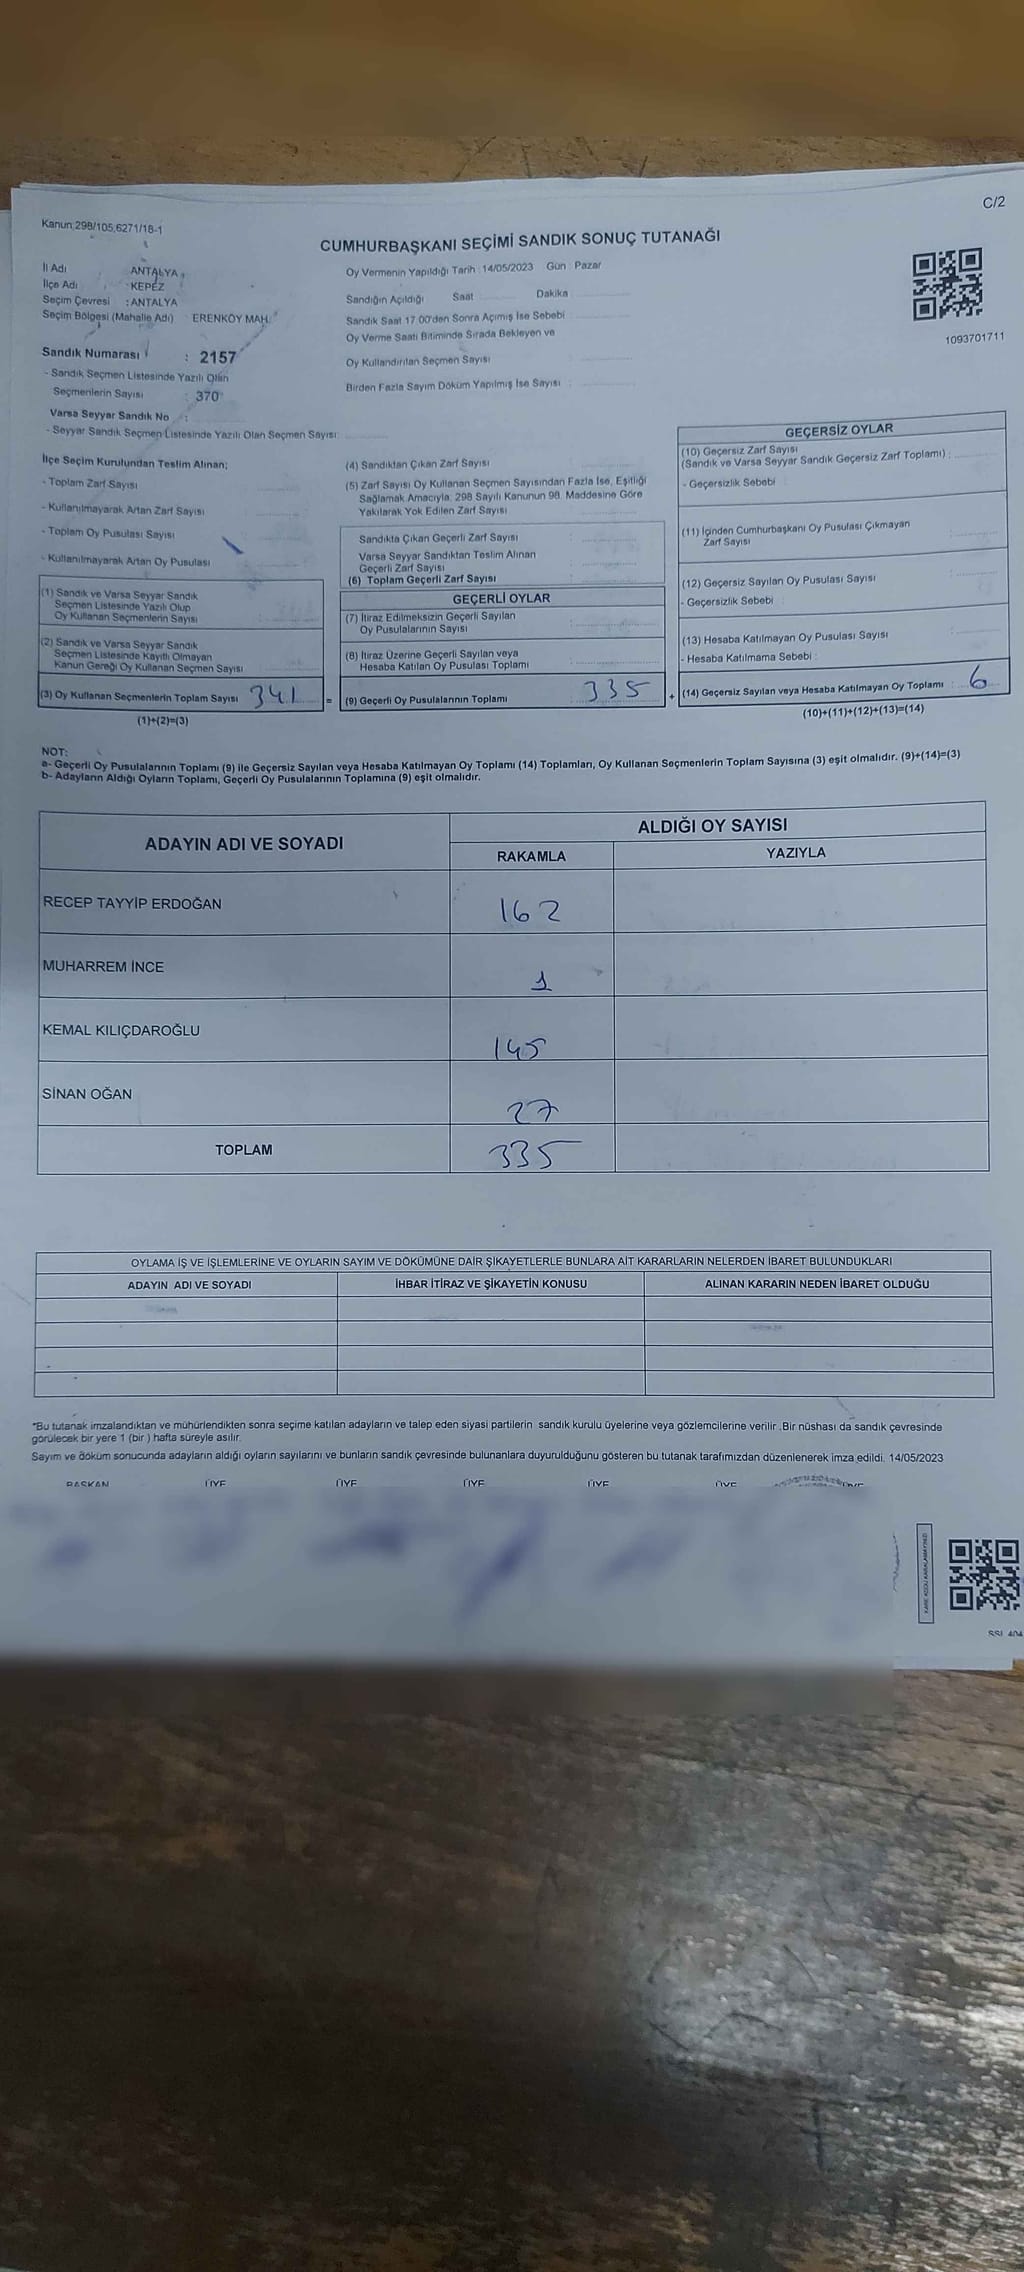 C/2
Kanun;298/105,6271/18-1
CUMHURBAŞKANI SEÇİMİ SANDIK SONUÇ TUTANAĞI
1093701711
İl Adı : ANTALYA
İlçe Adı : KEPEZ
Seçim Çevresi : ANTALYA
Seçim Bölgesi (Mahalle Adı) : ERENKÖY MAH.
Sandık Numarası : 2157
- Sandık Seçmen Listesinde Yazılı Olan
Seçmenlerin Sayısı : 370
Varsa Seyyar Sandık No :
- Seyyar Sandık Seçmen Listesinde Yazılı Olan Seçmen Sayısı:
Oy Vermenin Yapıldığı Tarih : 14/05/2023 Gün : Pazar
Sandığın Açıldığı Saat Dakika
Sandık Saat 17:00'den Sonra Açımış İse Sebebi :
Oy Verme Saati Bitiminde Sırada Bekleyen ve
Oy Kullandırılan Seçmen Sayısı :
Birden Fazla Sayım Döküm Yapılmış İse Sayısı :
İlçe Seçim Kurulundan Teslim Alınan;
- Toplam Zarf Sayısı
- Kullanılmayarak Artan Zarf Sayısı
- Toplam Oy Pusulası Sayısı
- Kullanılmayarak Artan Oy Pusulası
(1) Sandık ve Varsa Seyyar Sandık
Seçmen Listesinde Yazılı Olup
Oy Kullanan Seçmenlerin Sayısı
(2) Sandık ve Varsa Seyyar Sandık
Seçmen Listesinde Kayıtlı Olmayan
Kanun Gereği Oy Kullanan Seçmen Sayısı
(3) Oy Kullanan Seçmenlerin Toplam Sayısı 341 =
(1)+(2)=(3)
(4) Sandıktan Çıkan Zarf Sayısı
(5) Zarf Sayısı Oy Kullanan Seçmen Sayısından Fazla İse, Eşitliği
Sağlamak Amacıyla; 298 Sayılı Kanunun 98. Maddesine Göre
Yakılarak Yok Edilen Zarf Sayısı
Sandıkta Çıkan Geçerli Zarf Sayısı
Varsa Seyyar Sandıktan Teslim Alınan
Geçerli Zarf Sayısı
(6) Toplam Geçerli Zarf Sayısı
GEÇERLİ OYLAR
(7) İtiraz Edilmeksizin Geçerli Sayılan
Oy Pusulalarının Sayısı
(8) İtiraz Üzerine Geçerli Sayılan veya
Hesaba Katılan Oy Pusulası Toplamı
(9) Geçerli Oy Pusulalarının Toplamı 335 +
GEÇERSİZ OYLAR
(10) Geçersiz Zarf Sayısı
(Sandık ve Varsa Seyyar Sandık Geçersiz Zarf Toplamı) :
- Geçersizlik Sebebi :
(11) İçinden Cumhurbaşkanı Oy Pusulası Çıkmayan
Zarf Sayısı
(12) Geçersiz Sayılan Oy Pusulası Sayısı
- Geçersizlik Sebebi :
(13) Hesaba Katılmayan Oy Pusulası Sayısı
- Hesaba Katılmama Sebebi :
(14) Geçersiz Sayılan veya Hesaba Katılmayan Oy Toplamı : 6
(10)+(11)+(12)+(13)=(14)
NOT:
a- Geçerli Oy Pusulalarının Toplamı (9) ile Geçersiz Sayılan veya Hesaba Katılmayan Oy Toplamı (14) Toplamları, Oy Kullanan Seçmenlerin Toplam Sayısına (3) eşit olmalıdır. (9)+(14)=(3)
b- Adayların Aldığı Oyların Toplamı, Geçerli Oy Pusulalarının Toplamına (9) eşit olmalıdır.
ADAYIN ADI VE SOYADI
ALDIĞI OY SAYISI
RAKAMLA YAZIYLA
RECEP TAYYİP ERDOĞAN 162
MUHARREM İNCE 1
KEMAL KILIÇDAROĞLU 145
SİNAN OĞAN 27
TOPLAM 335
OYLAMA İŞ VE İŞLEMLERİNE VE OYLARIN SAYIM VE DÖKÜMÜNE DAİR ŞİKAYETLERLE BUNLARA AİT KARARLARIN NELERDEN İBARET BULUNDUKLARI
ADAYIN ADI VE SOYADI İHBAR İTİRAZ VE ŞİKAYETİN KONUSU ALINAN KARARIN NEDEN İBARET OLDUĞU
*Bu tutanak imzalandıktan ve mühürlendikten sonra seçime katılan adayların ve talep eden siyasi partilerin sandık kurulu üyelerine veya gözlemcilerine verilir .Bir nüshası da sandık çevresinde
görülecek bir yere 1 (bir ) hafta süreyle asılır.
Sayım ve döküm sonucunda adayların aldığı oyların sayılarını ve bunların sandık çevresinde bulunanlara duyurulduğunu gösteren bu tutanak tarafımızdan düzenlenerek imza edildi. 14/05/2023
BAŞKAN ÜYE ÜYE ÜYE ÜYE ÜYE